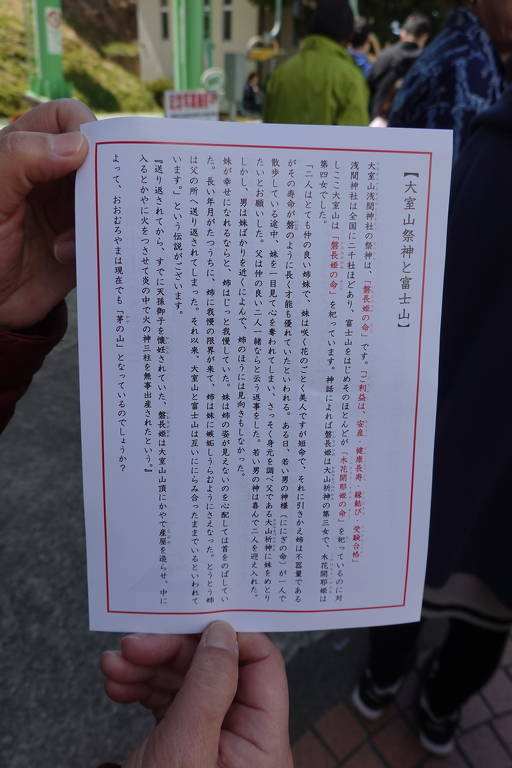 【大室山祭神と富士山】
大室山浅間神社の祭神は、「磐長姫の命」です。「ご利益は、安産・健康長寿・縁結び・受験合格」
浅間神社は全国に二千社ほどあり、富士山をはじめそのほとんどが「木花開耶姫の命」を祀っているのに対
しここ大室山は「磐長姫の命」を祀っています。神話によれば磐長姫は大山祈神の第三女で、木花開耶姫は
第四女でした。
「二人はとても仲の良い姉妹で、妹は咲く花のごとく美人ですが短命で、それに引きかえ姉は不器量である
がその寿命が磐のように長く才能も優れていたといわれる。ある日、若い男の神様（ににぎの命）が一人で
散歩している途中、妹を一目見て心を奪われてしまい、さっそく身元を調べ父である大山祈神に妹をめとり
たいとお願いした。父は仲の良い二人一緒ならと云う返事をした。若い男の神は喜んで二人を迎え入れた。
しかし、男は妹ばかりを近くによんで、姉のほうには見向きもしなかった。
妹が幸せになれるならと、姉はじっと我慢していた。妹は姉の姿が見えないのを心配しては首をのばしてい
た。長い年月がたつうちに、姉に我慢の限界が来て、姉は妹に嫉妬しうらむようにさえなった。とうとう姉
は父の所へ送り返されてしまった。それ以来、大室山と富士山は互いににらみ合ったままでいるといわれて
います。」という伝説がございます。
『送り返されてから、すでに天孫御子を懐妊されていた、磐長姫は大室山山頂にかやで産屋を造らせ、中に
入るとかやに火をつさせて炎の中で火の神三柱を無事出産されたという。』
よって、おおむろやまは現在でも「茅の山」となっているのでしょうか？